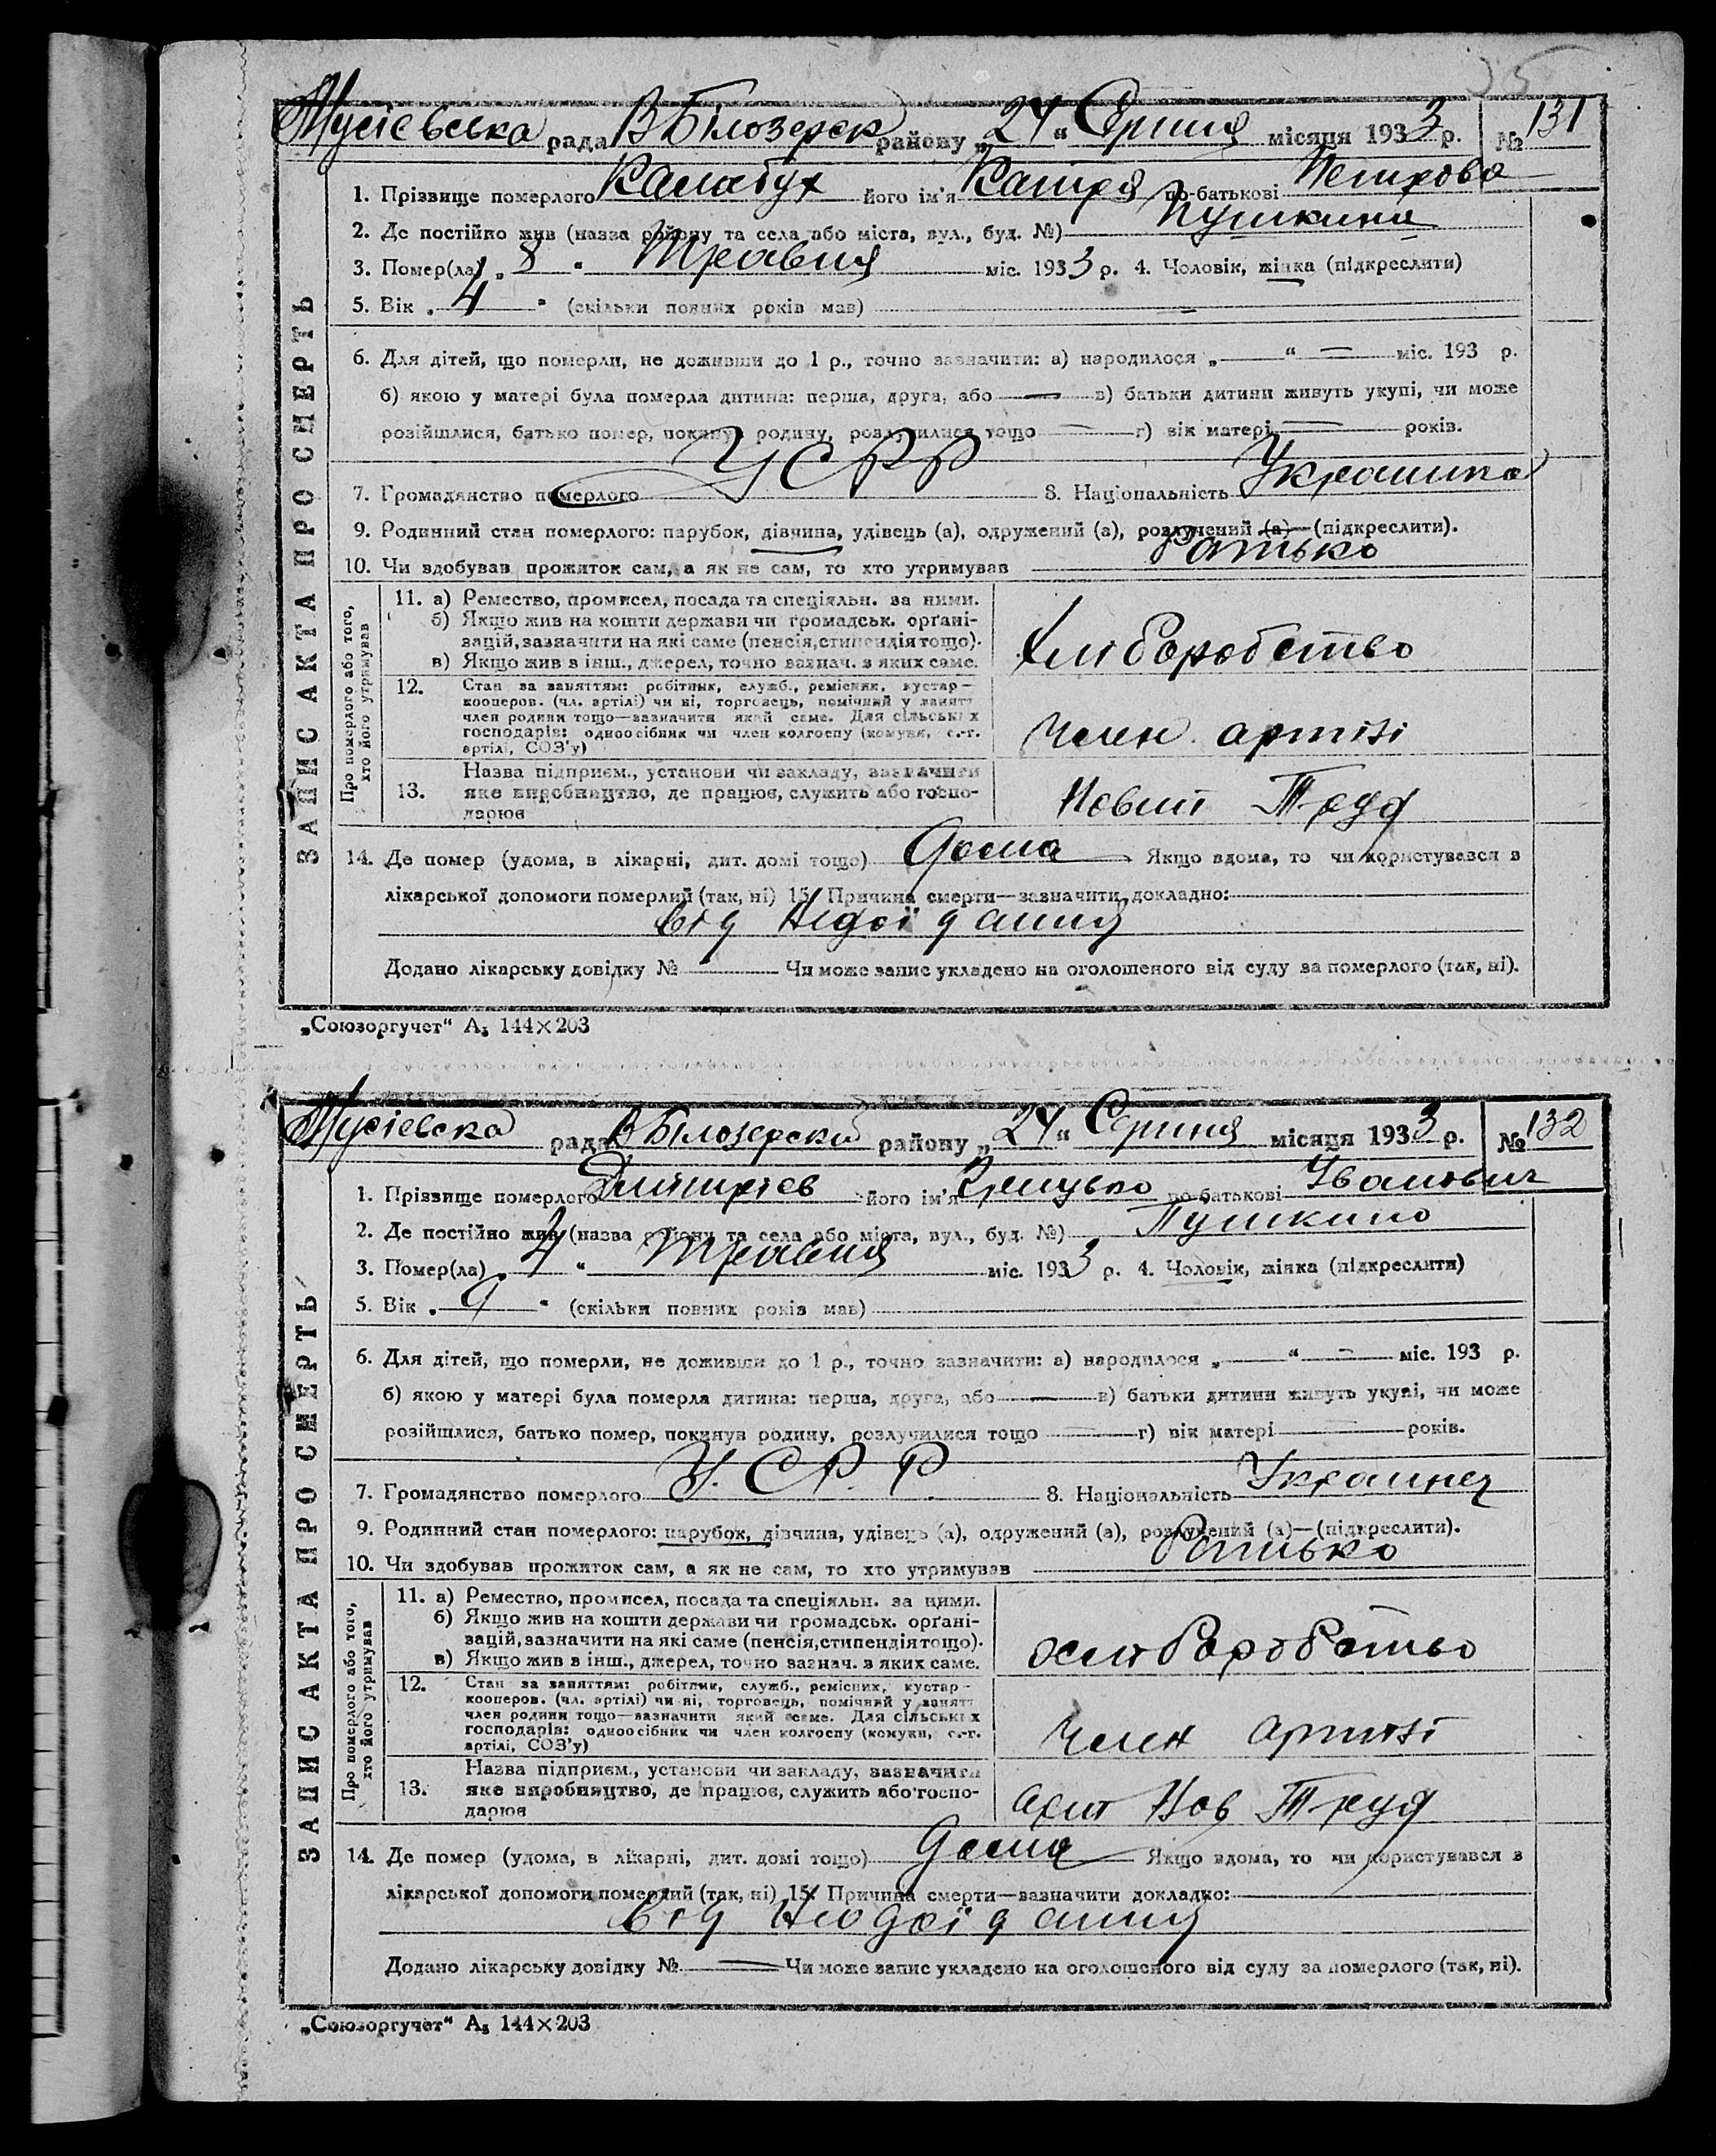 35
Мусієвська рада В Білозерск району „24“ Серпня місяця 1933 р. № 131
ЗАПИС АКТА ПРО СМЕРТЬ
1. Прізвище померлого Калабух його ім'я Катря по-батькові Петрова
2. Де постійно жив (назва району та села або міста, вул., буд. №) Пушкина
3. Помер(ла) „8“ Травня міс. 1933 р. 4. Чоловік, жінка (підкреслити)
5. Вік „4“ (скільки повних років мав)
6. Для дітей, що померли, не доживши до 1 р., точно зазначити: а) народилося „—“ — міс. 193 р.
б) якою у матері була померла дитина: перша, друга, або — в) батьки дитини живуть укупі, чи може
розійшлися, батько помер, покинув родину, розлучилися тощо — г) вік матері — років.
7. Громадянство померлого УСРР 8. Національність Украинка
9. Родинний стан померлого: парубок, дівчина, удівець (а), одружений (а), розлучений (а)—(підкреслити).
10. Чи здобував прожиток сам, а як не сам, то хто утримував Батько
Про померлого або того, хто його утримував
11. а) Ремество, промисел, посада та спеціяльн. за ними.
б) Якщо жив на кошти держави чи громадськ. орґані-
зацій, зазначити на які саме (пенсія, стипендія тощо).
в) Якщо жив в інш., джерел, точно зазнач. з яких саме.
Хліборобство
12. Стан за заняттям: робітник, служб., ремісник, кустар—
кооперов. (чл. артілі) чи ні, торговець, помічний у занятт
член родини тощо—зазначити який саме. Для сільських
господарів: одноосібник чи член колгоспу (комуни, с.-г.
артілі, СОЗ'у)
Член артілі
13. Назва підприєм., установи чи закладу, зазначити
яке виробництво, де працює, служить або госпо-
дарює
Новий Труд
14. Де помер (удома, в лікарні, дит. домі тощо) Дома Якщо вдома, то чи користувався в
лікарської допомоги померлий (так, ні) 15. Причина смерти—зазначити докладно:
від Недоїдання
Додано лікарську довідку № — Чи може запис укладено на оголошеного від суду за померлого (так, ні).
„Союзоргучет“ А₅ 144×203
Мусієвска рада В Білозерский району „24“ Серпня місяця 1933 р. № 132
ЗАПИС АКТА ПРО СМЕРТЬ
1. Прізвище померлого Дмитрієв його ім'я Грицько по-батькові Іванович
2. Де постійно жив (назва району та села або міста, вул., буд. №) Пушкино
3. Помер(ла) „4“ Травня міс. 1933 р. 4. Чоловік, жінка (підкреслити)
5. Вік „9“ (скільки повних років мав)
6. Для дітей, що померли, не доживши до 1 р., точно зазначити: а) народилося „—“ — міс. 193 р.
б) якою у матері була померла дитина: перша, друга, або — в) батьки дитини живуть укупі, чи може
розійшлися, батько помер, покинув родину, розлучилися тощо — г) вік матері — років.
7. Громадянство померлого У.С.Р.Р. 8. Національність Украинец
9. Родинний стан померлого: парубок, дівчина, удівець (а), одружений (а), розлучений (а)—(підкреслити).
10. Чи здобував прожиток сам, а як не сам, то хто утримував Батько
Про померлого або того, хто його утримував
11. а) Ремество, промисел, посада та спеціяльн. за ними.
б) Якщо жив на кошти держави чи громадськ. орґані-
зацій, зазначити на які саме (пенсія, стипендія тощо).
в) Якщо жив в інш., джерел, точно зазнач. з яких саме.
хліборобство
12. Стан за заняттям: робітник, служб., ремісник, кустар—
кооперов. (чл. артілі) чи ні, торговець, помічний у занятт
член родини тощо—зазначити який саме. Для сільських
господарів: одноосібник чи член колгоспу (комуни, с.-г.
артілі, СОЗ'у)
Член артілі
13. Назва підприєм., установи чи закладу, зазначити
яке виробництво, де працює, служить або госпо-
дарює
Нов Труд
14. Де помер (удома, в лікарні, дит. домі тощо) Дома Якщо вдома, то чи користувався в
лікарської допомоги померлий (так, ні) 15. Причина смерти—зазначити докладно:
від Недоїдання
Додано лікарську довідку № — Чи може запис укладено на оголошеного від суду за померлого (так, ні).
„Союзоргучет“ А₅ 144×203